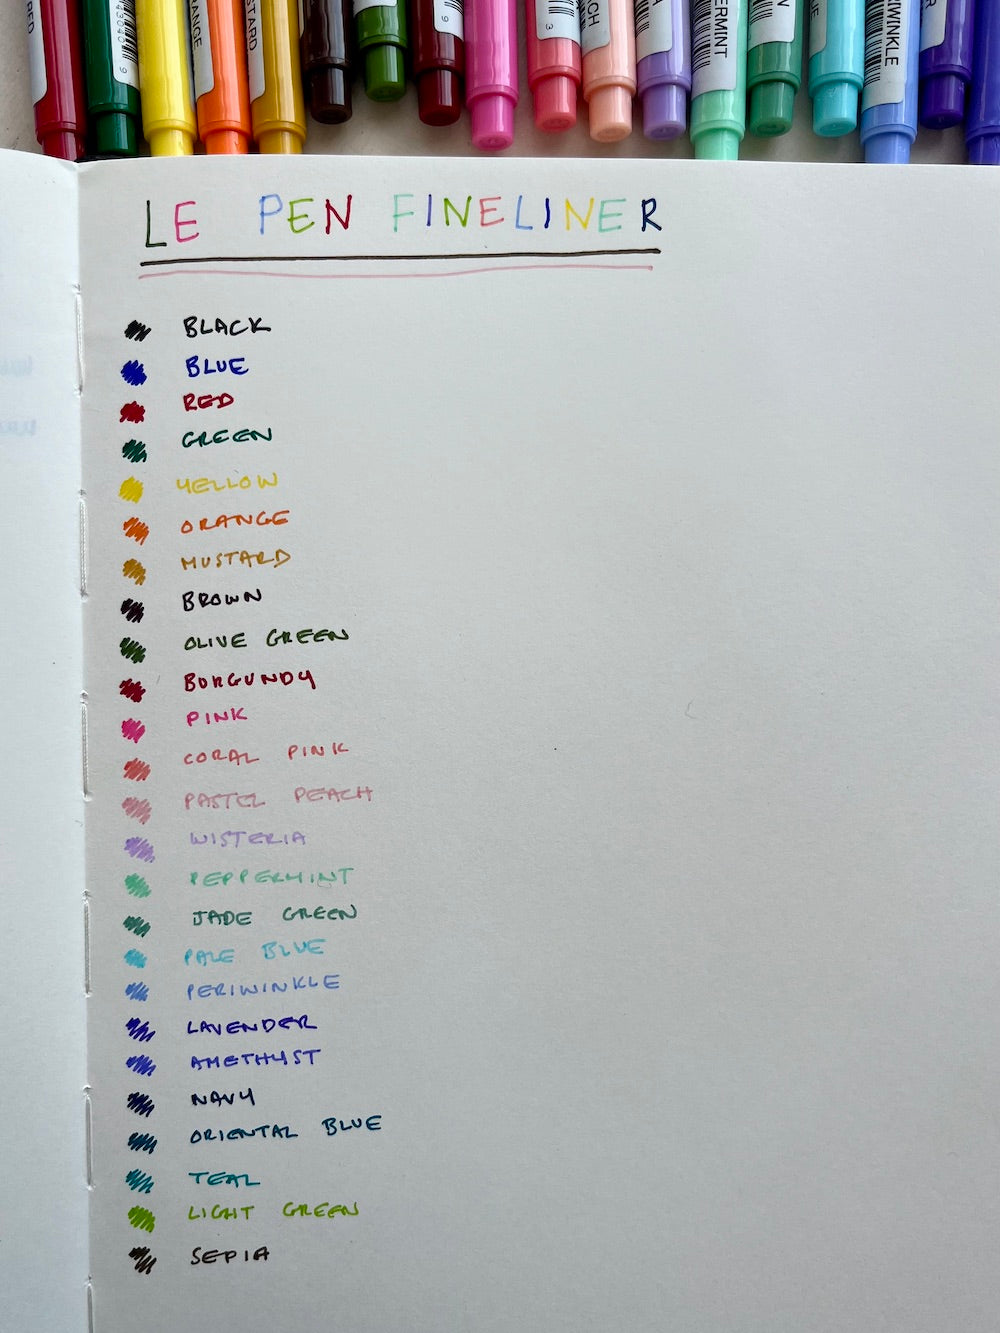 RED
ORANGE
MUSTARD
9
3
PERIWINKLE
LE PEN FINELINER
BLACK
BLUE
RED
GREEN
YELLOW
ORANGE
MUSTARD
BROWN
OLIVE GREEN
BURGUNDY
PINK
CORAL PINK
PASTEL PEACH
WISTERIA
PEPPERMINT
JADE GREEN
PALE BLUE
PERIWINKLE
LAVENDER
AMETHYST
NAVY
ORIENTAL BLUE
TEAL
LIGHT GREEN
SEPIA